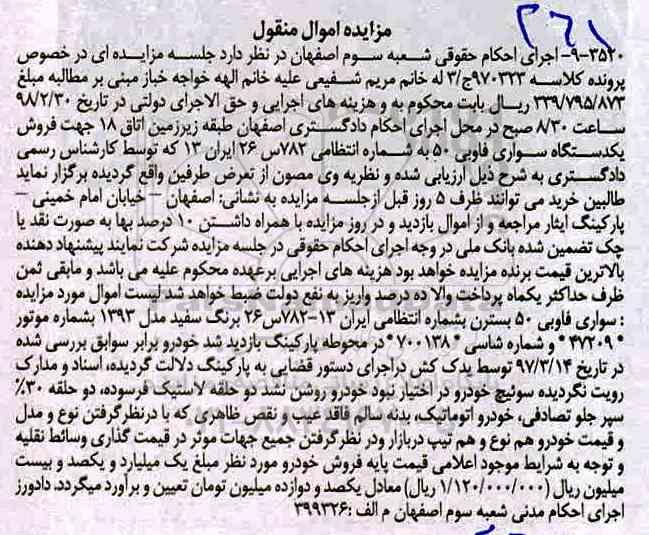 ۳۶۱
مزایده اموال منقول
۳۵۲۰-۹- اجرای احکام حقوقی شعبه سوم اصفهان در نظر دارد جلسه مزایده ای در خصوص
پرونده کلاسه ۹۷۰۳۲۳ج/۳ له خانم مریم شفیعی علیه خانم الهه خواجه خباز مبنی بر مطالبه مبلغ
۳۳۹/۷۹۵/۸۷۳ ریـال بابت محکوم به و هزینه های اجرایی و حق الاجرای دولتی در تاریخ ۹۸/۲/۳۰
ساعت ۸/۳۰ صبح در محل اجرای احکام دادگستری اصفهان طبقه زیرزمین اتاق ۱۸ جهت فروش
یکدستگاه سواری فاوبی ۵۰ به شماره انتظامی ۷۸۲س ۲۶ ایران ۱۳ که توسط کارشناس رسمی
دادگستری به شرح ذیل ارزیابی شده و نظریه وی مصون از تعرض طرفین واقع گردیده برگزار نماید
طالبین خرید می توانند ظرف ۵ روز قبل ازجلسـه مزایده به نشانی: اصفهان – خیابان امام خمینی –
پارکینگ ایثار مراجعه و از اموال بازدید و در روز مزایده با همراه داشتن ۱۰ درصد بها به صورت نقد یا
چک تضمین شده بانک ملی در وجه اجرای احکام حقوقی در جلسه مزایده شرکت نمایند پیشنهاد دهنده
بالاترین قیمت برنده مزایده خواهد بود هزینه های اجرایی برعهده محکوم علیه می باشد و مابقی ثمن
ظرف حداکثر یکماه پرداخت والا ده درصد واریز به نفع دولت ضبط خواهد شد لیست اموال مورد مزایده
: سواری فاوبی ۵۰ بسترن بشماره انتظامی ایران ۱۳-۷۸۲س۲۶ برنگ سفید مدل ۱۳۹۳ بشماره موتور
* ۴۷۲۰۹ * و شماره شاسی * ۷۰۰۱۳۸ * در محوطه پارکینگ بازدید شد خودرو برابر سوابق بررسی شده
در تاریخ ۹۷/۳/۱۴ توسط یدک کش دراجرای دستور قضایی به پارکینگ دلالت گردیده، اسناد و مدارک
رویت نگردیده سوئیچ خودرو در اختیار نبود خودرو روشن نشد دو حلقه لاستیک فرسوده، دو حلقه ۳۰٪
سپر جلو تصادفی، خودرو اتوماتیک، بدنه سالم فاقد عیب و نقص ظاهری که با درنظرگرفتن نوع و مدل
و قیمت خودرو هم نوع و هم تیپ دربازار ودر نظرگرفتن جمیع جهات موثر در قیمت گذاری وسائط نقلیه
و توجه به شرایط موجود اعلامی قیمت پایه فروش خودرو مورد نظر مبلغ یک میلیارد و یکصد و بیست
میلیون ریال (۱/۱۲۰/۰۰۰/۰۰۰ ریال) معادل یکصد و دوازده میلیون تومان تعیین و برآورد میگردد. دادورز
اجرای احکام مدنی شعبه سوم اصفهان م الف :۳۹۹۳۲۶